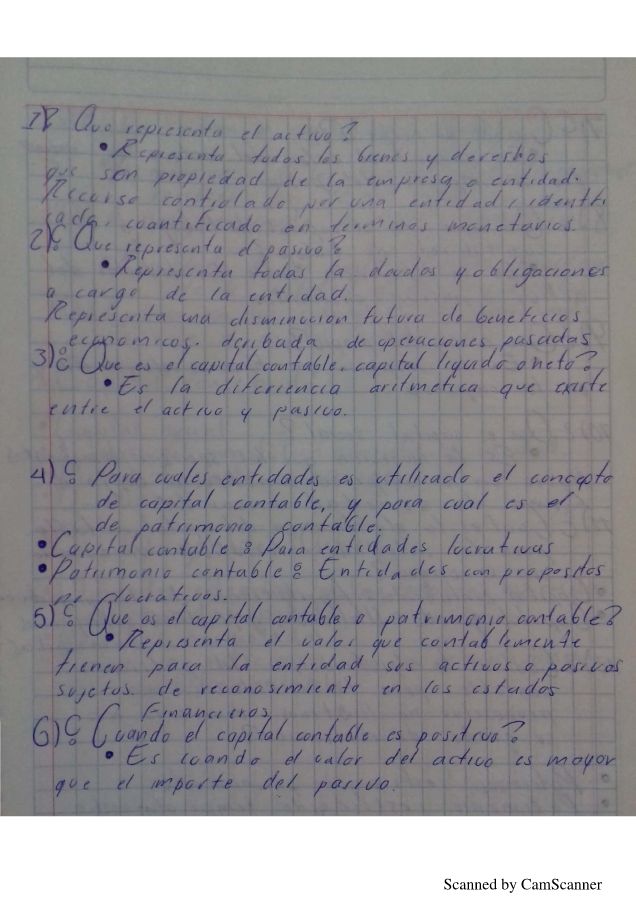 1)¿ Que representa el activo?
• Representa todos los bienes y dereshos
que son propiedad de la empresa o entidad.
Recurso controlado por una entidad, identifi
cada, cuantificado en terminos monetarios
2)¿ Que representa el pasivo?
• Representa todas la deudas y obligaciones
a cargo de la entidad.
Representa una disminucion futura de beneficios
economicos. deribada de operaciones pasadas
3)¿ Que es el capital contable, capital liquido o neto?
• Es la diferiencia aritmetica que existe
entre el activo y pasivo.
4)¿ Para cuales entidades es utilizado el concepto
de capital contable, y para cual es el
de patrimonio contable.
• Capital contable: Para entidades lucrativas
• Patrimonio contable: Entidades con propositos
lucrativos.
5)¿ Que es el capital contable o patrimonio contable?
• Representa el valor que contablemente
tienen para la entidad sus activos o pasivos
sujetos de reconosimiento en los estados
Financieros
6)¿ Cuando el capital contable es positivo?
• Es cuando el valor del activo es mayor
que el importe del pasivo.
Scanned by CamScanner